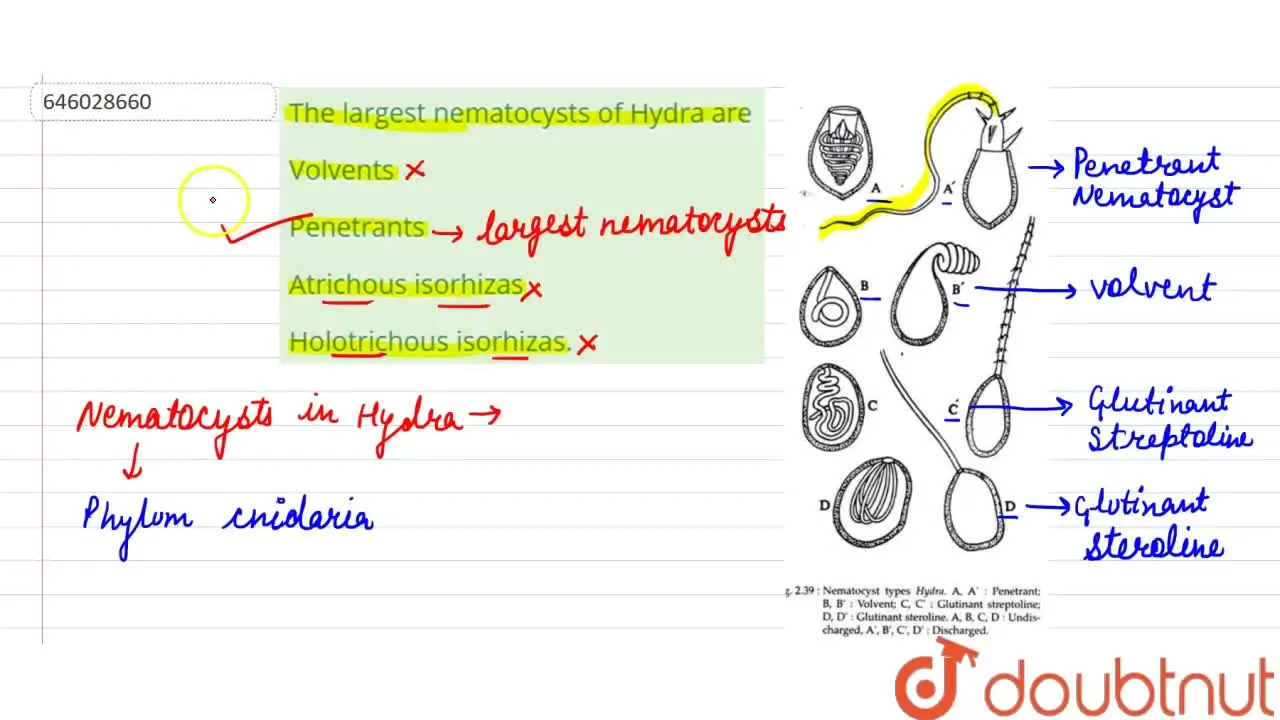 646028660
The largest nematocysts of Hydra are
Volvents ×
Penetrants → largest nematocysts
Atrichous isorhizas ×
Holotrichous isorhizas. ×
Nematocysts in Hydra →
↓
Phylum cnidaria
A
A′
→ Penetrant
Nematocyst
B
B′
→ volvent
C
C′
→ Glutinant
Streptoline
D
D
→ Glutinant
steroline
g. 2.39 : Nematocyst types Hydra. A, A′ : Penetrant;
B, B′ : Volvent; C, C′ : Glutinant streptoline;
D, D′ : Glutinant steroline. A, B, C, D : Undis-
charged, A′, B′, C′, D′ : Discharged.
doubtnut